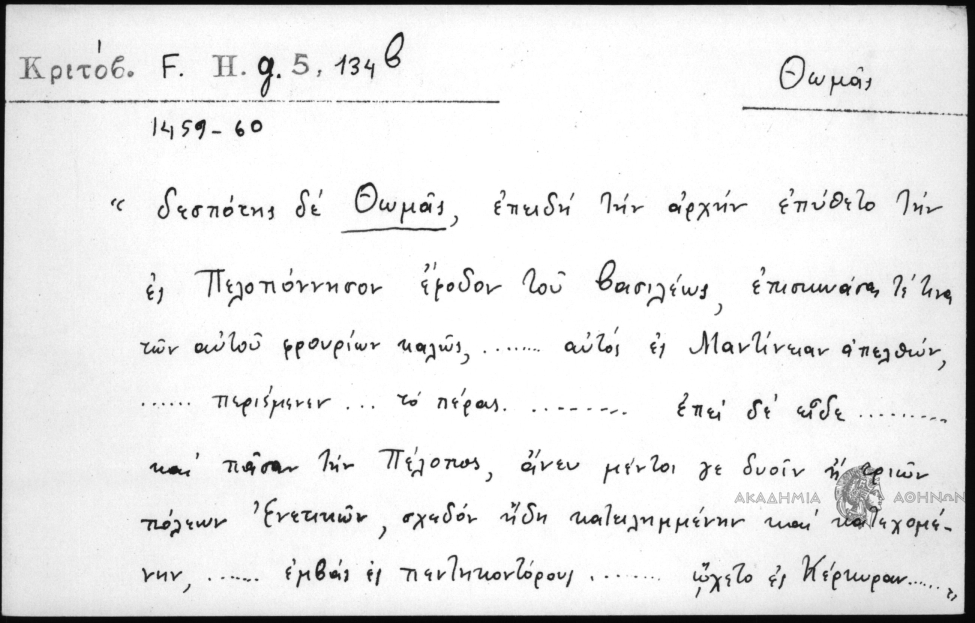 Κριτόβ. F. H. g. 5, 134β
Θωμᾶς
1459-60
“ δεσπότης δέ Θωμᾶς, ἐπειδή τήν ἀρχήν ἐπύθετο τήν
ἐς Πελοπόννησον ἔφοδον τοῦ βασιλέως, ἐπισκευάσας τέ τινα
τῶν αὐτοῦ φρουρίων καλῶς, ........ αὐτός ἐς Μαντίνειαν ἀπελθών,
...... περιέμενεν ... τό πέρας. ......... ἐπεί δέ εἶδε .........
καί πᾶσαν τήν Πέλοπος, ἄνευ μέντοι γε δυοῖν ἤ τριῶν
ΑΚΑΔΗΜΙΑ ΑΘΗΝΩΝ
πόλεων Ἐνετικῶν, σχεδόν ἤδη κατειλημμένην καί κατεχομέ-
νην, ...... ἐμβάς ἐς πεντηκοντόρους ........ ᾤχετο ἐς Κέρκυραν.....”